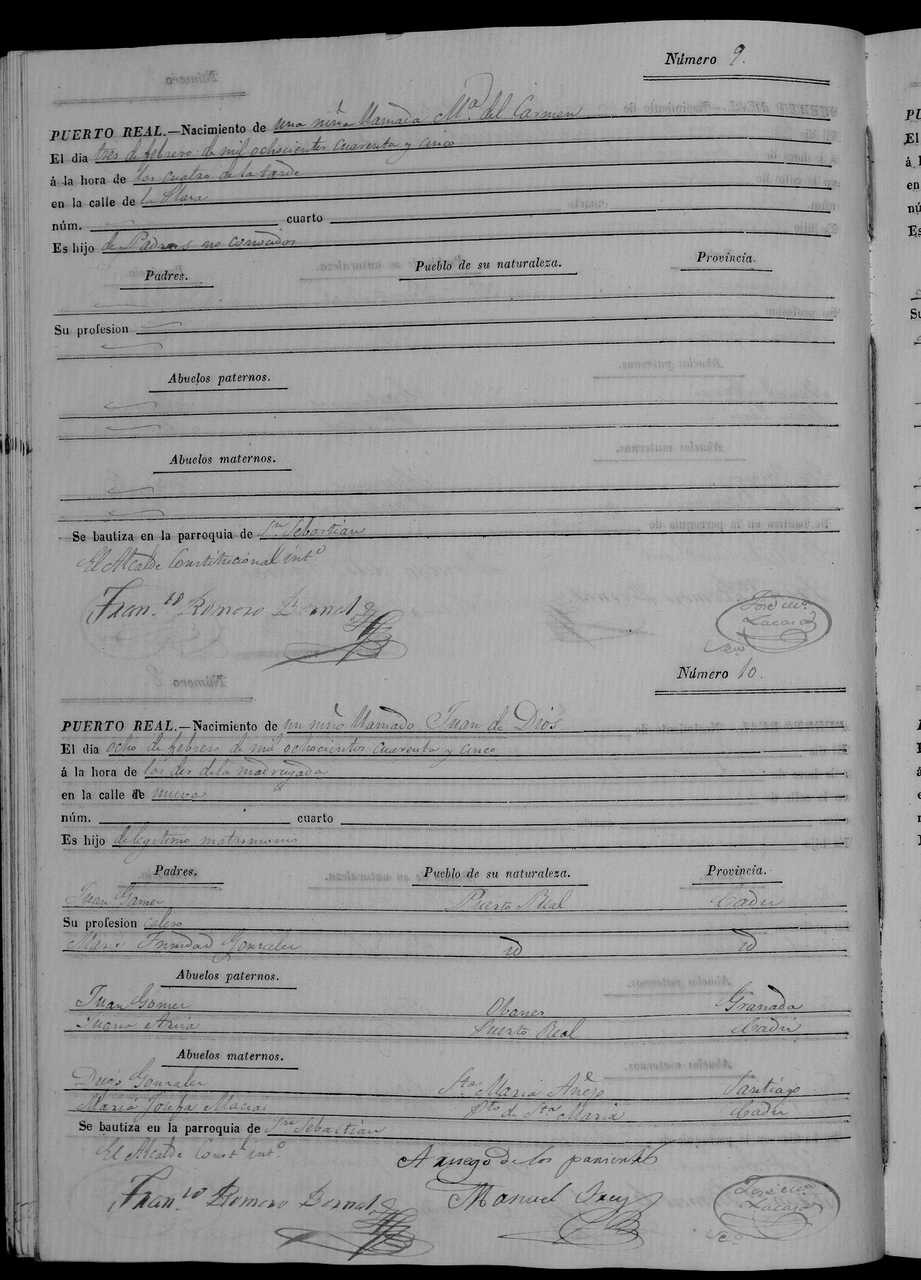 Número 9.
PUERTO REAL.—Nacimiento de una niña llamada Mª del Carmen
El dia tres de febrero de mil ochocientos cuarenta y cinco
á la hora de las cuatro de la tarde
en la calle de la Plaza
núm. cuarto
Es hijo de Padres no conocidos
Padres. Pueblo de su naturaleza. Provincia.
Su profesion
Abuelos paternos.
Abuelos maternos.
Se bautiza en la parroquia de Sn Sebastian
El Alcalde Constitucional intº
Franco Romero Bernal
José Mª
Lacara
Número 10.
PUERTO REAL.—Nacimiento de un niño llamado Juan de Dios
El dia ocho de febrero de mil ochocientos cuarenta y cinco
á la hora de las dos de la madrugada
en la calle de nueva
núm. cuarto
Es hijo de legitimo matrimonio
Padres. Pueblo de su naturaleza. Provincia.
Juan Gomez Puerto Real Cadiz
Su profesion
Maria Trinidad Gonzalez id id
Abuelos paternos.
Juan Gomez Ohanes Granada
Juana Puerto Real Cadiz
Abuelos maternos.
Gonzalez Sta Maria Santiago
Maria Josefa Macias Pto de Sta Maria Cadiz
Se bautiza en la parroquia de Sn Sebastian
El Alcalde Constl intº A ruego de los parientes
Franco Romero Bernal Manuel
José Mª
Lacara